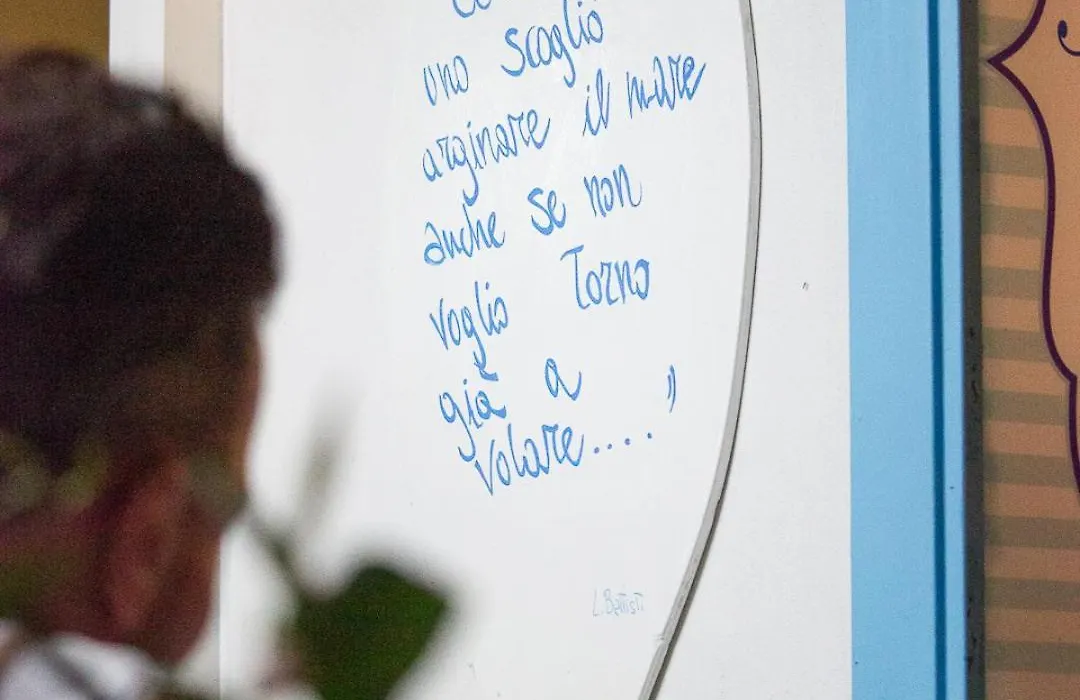 uno scoglio
arginare il mare
anche se non
voglio torno
già a
volare.... "
L. Battisti